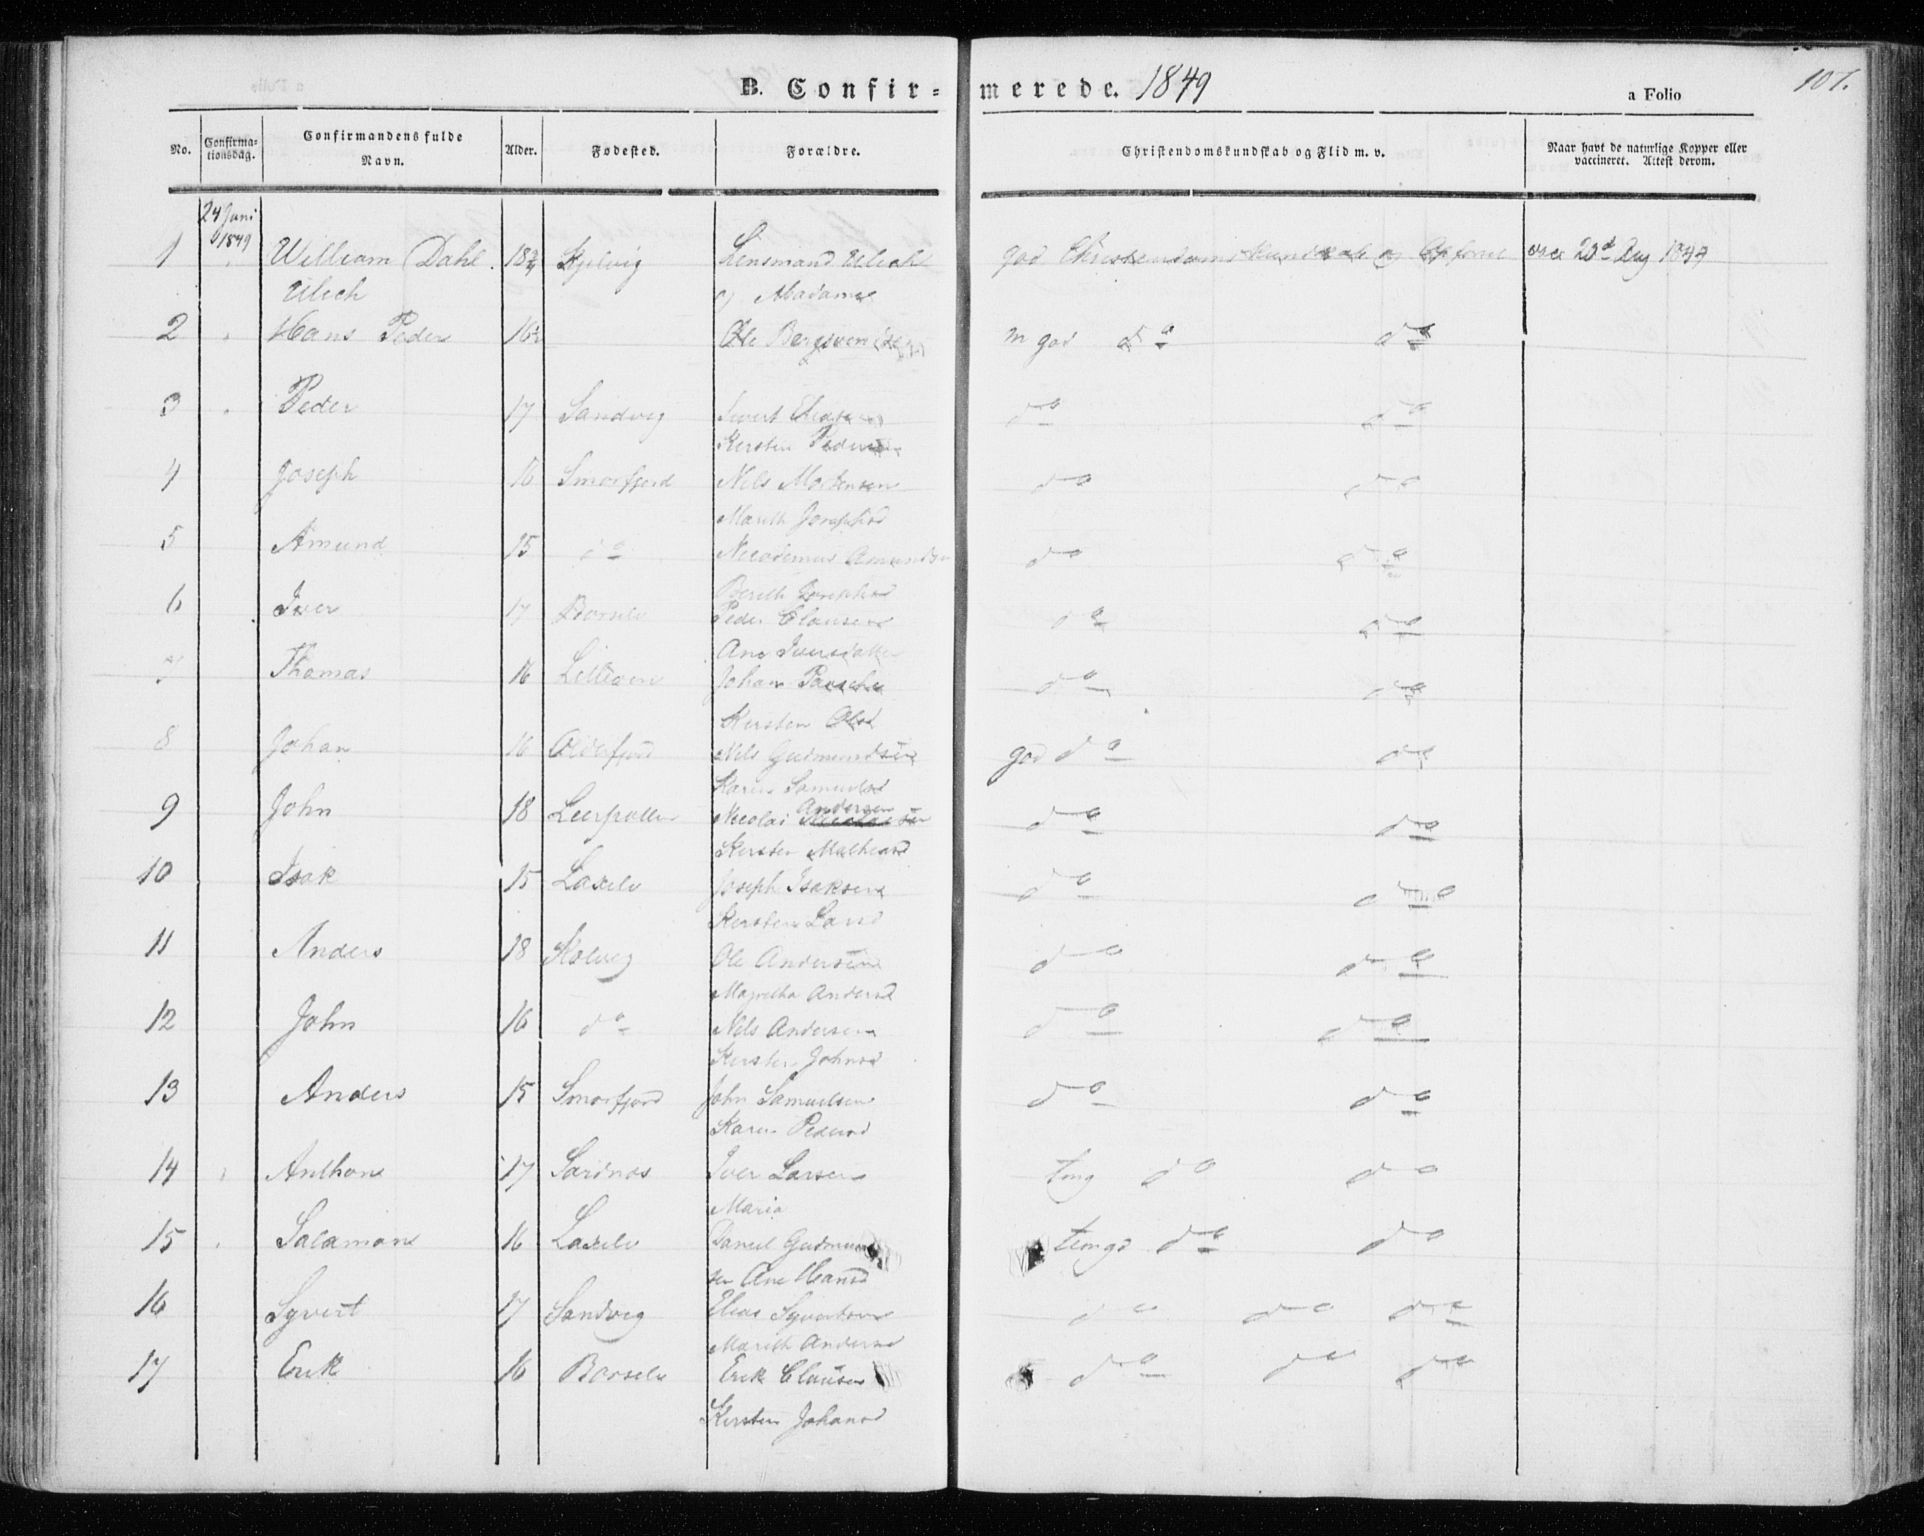 B. Confir- merede. 1849
a Folio
107.
No. Confirma-tionsdag. Confirmandens fulde Navn. Alder. Fødested. Forældre. Christendomskundskab og Flid m. v. Naar havt de naturlige Kopper eller vaccineret. Attest derom.
24 Juni
1849
1 William Dahl 18 3/4 Kjelvig Lensmand Ulich god Christendomskundskab og
Ulich og Madame
2 Hans Peder 16 1/2 Ole m god do do
3 Peder 17 Sandvig Sivert do do
Kersten
4 Joseph 16 Smorfjord Nils Mortensen do do
Marith Josephsd
5 Amund 15 do Nicodemus Amundsen do do
Berith Josephsd
6 Iver 17 Borselv Peder Clausen do do
Ane Iversdatter
7 Thomas 16 Johan do do
Kersten Olsd
8 Johan 16 Olderfjord Nils Gudmundsen god do do
Karen Samuelsd
Andersen
9 John 18 Leerpollen Nicolai do do
Kersten Mathiasd
10 Isak 15 Laxelv Joseph Isaksen do do
Kersten Larsd
11 Anders 18 Kolvig Ole Andersen do do
Magretha Andersd
12 John 16 do Nils Andersen do do
Kersten Johnsd
13 Anders 15 Smorfjord John Samuelsen do do
Karen Pedersd
14 Anthon 17 Sarnes Iver Larsen do do
Maria
15 Salamon 16 Laxelv Daniel Gudmun
do do
sen Ane Hansd
16 Syvert 17 Sandvig Elias Syvertsen do do do
Marith Andersd
17 Erik 16 Borselv Erik Clausen do do do
Kersten Johansd